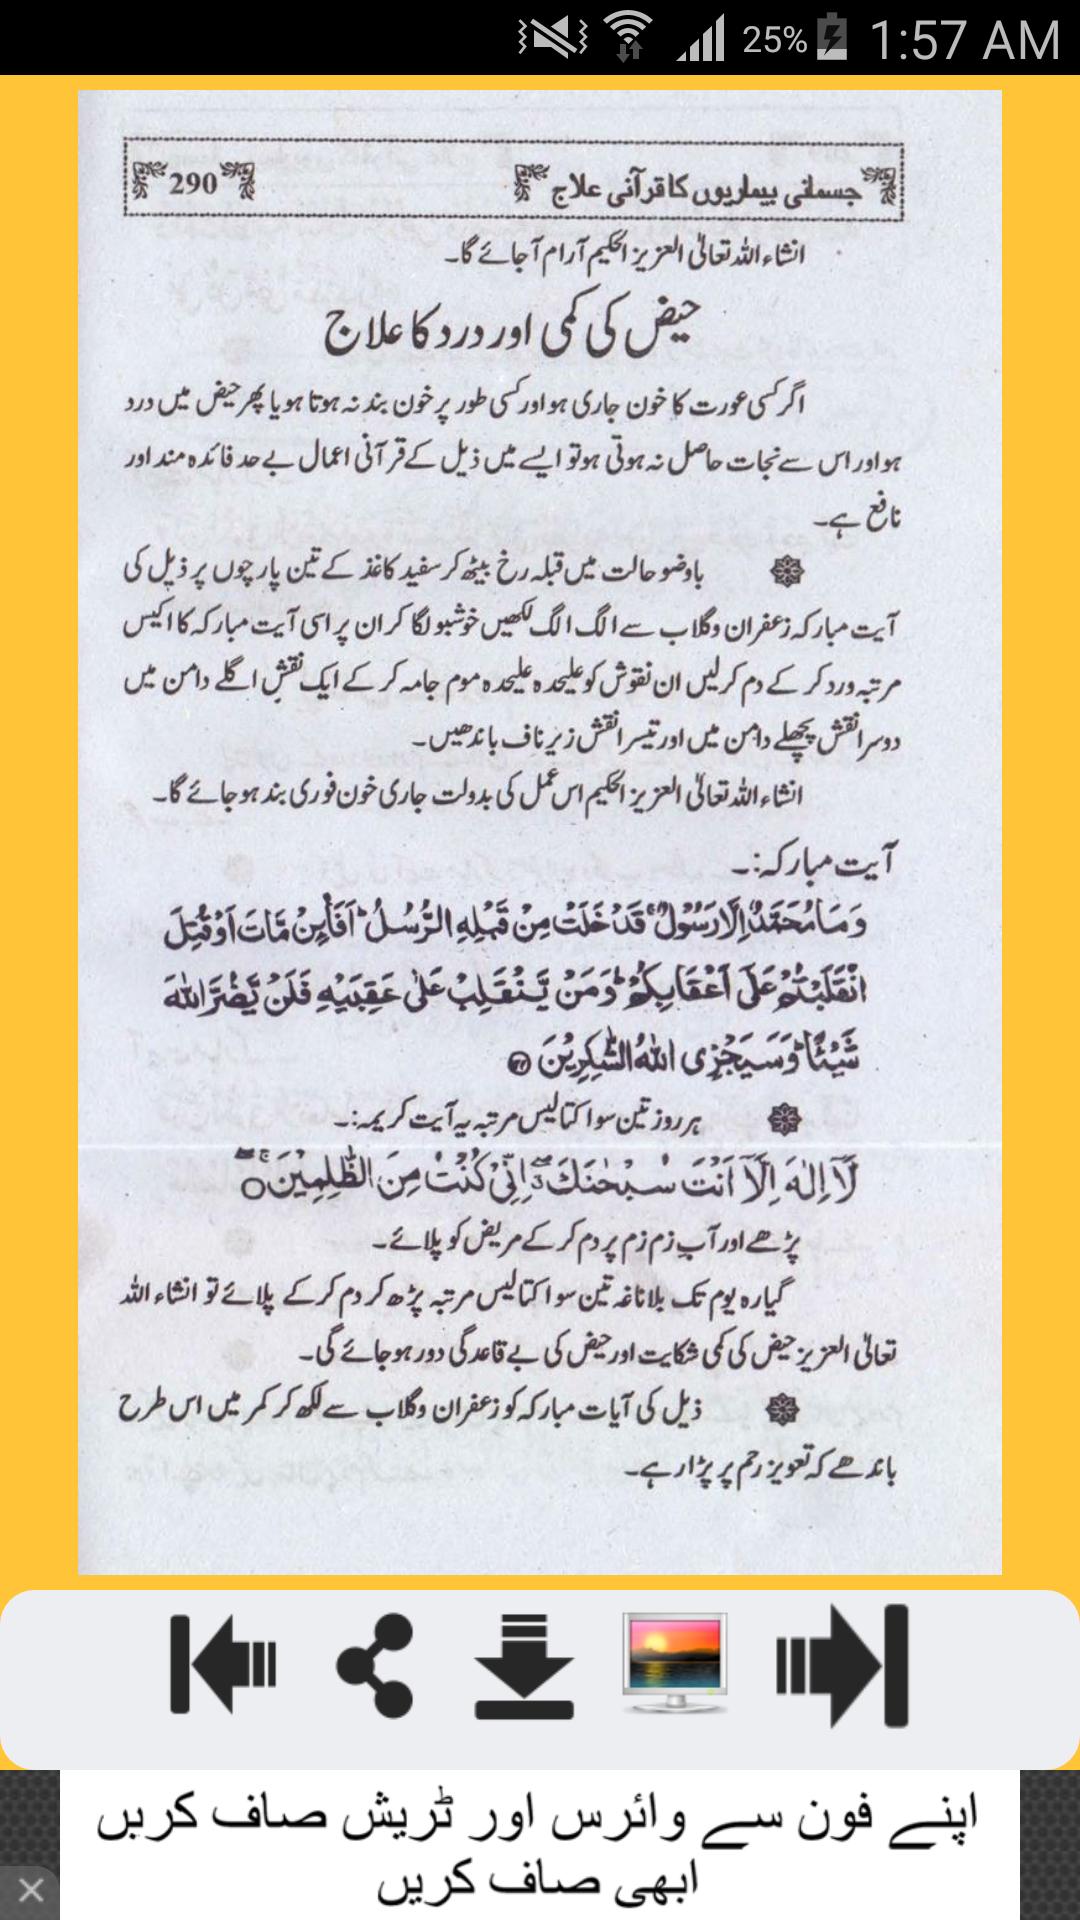 25% 1:57 AM
جسمانی بیماریوں کا قرآنی علاج 290
انشاء اللہ تعالیٰ العزیز الحکیم آرام آجائے گا۔
حیض کی کمی اور درد کا علاج
اگر کسی عورت کا خون جاری ہو اور کسی طور پر خون بند نہ ہوتا ہو یا پھر حیض میں درد
ہو اور اس سے نجات حاصل نہ ہوتی ہو تو ایسے میں ذیل کے قرآنی اعمال بے حد فائدہ مند اور
نافع ہے۔
باوضو حالت میں قبلہ رخ بیٹھ کر سفید کاغذ کے تین پارچوں پر ذیل کی
آیت مبارکہ زعفران و گلاب سے الگ الگ لکھیں خوشبو لگا کر ان پر اسی آیت مبارکہ کا اکیس
مرتبہ ورد کر کے دم کرلیں ان نقوش کو علیحدہ علیحدہ موم جامہ کر کے ایک نقش اگلے دامن میں
دوسرا نقش پچھلے دامن میں اور تیسرا نقش زیر ناف باندھیں۔
انشاء اللہ تعالیٰ العزیز الحکیم اس عمل کی بدولت جاری خون فوری بند ہو جائے گا۔
آیت مبارکہ:۔
وَمَا مُحَمَّدٌ اِلَّا رَسُوْلٌ ۚ قَدْ خَلَتْ مِنْ قَبْلِهِ الرُّسُلُ ؕ اَفَا۟ئِنْ مَّاتَ اَوْ قُتِلَ
انْقَلَبْتُمْ عَلٰۤى اَعْقَابِكُمْ ؕ وَمَنْ يَّنْقَلِبْ عَلٰى عَقِبَيْهِ فَلَنْ يَّضُرَّ اللّٰهَ
شَيْـًٔا ؕ وَسَيَجْزِى اللّٰهُ الشّٰكِرِيْنَ
ہر روز تین سو اکتالیس مرتبہ یہ آیت کریمہ:۔
لَاۤ اِلٰهَ اِلَّاۤ اَنْتَ سُبْحٰنَكَ ۖ اِنِّىْ كُنْتُ مِنَ الظّٰلِمِيْنَ
پڑھے اور آبِ زم زم پر دم کر کے مریض کو پلائے۔
گیارہ یوم تک بلاناغہ تین سو اکتالیس مرتبہ پڑھ کر دم کر کے پلائے تو انشاء اللہ
تعالیٰ العزیز حیض کی کمی شکایت اور حیض کی بے قاعدگی دور ہو جائے گی۔
ذیل کی آیات مبارکہ کو زعفران و گلاب سے لکھ کر کمر میں اس طرح
باندھے کہ تعویز رحم پر پڑا رہے۔
اپنے فون سے وائرس اور ٹریش صاف کریں
ابھی صاف کریں